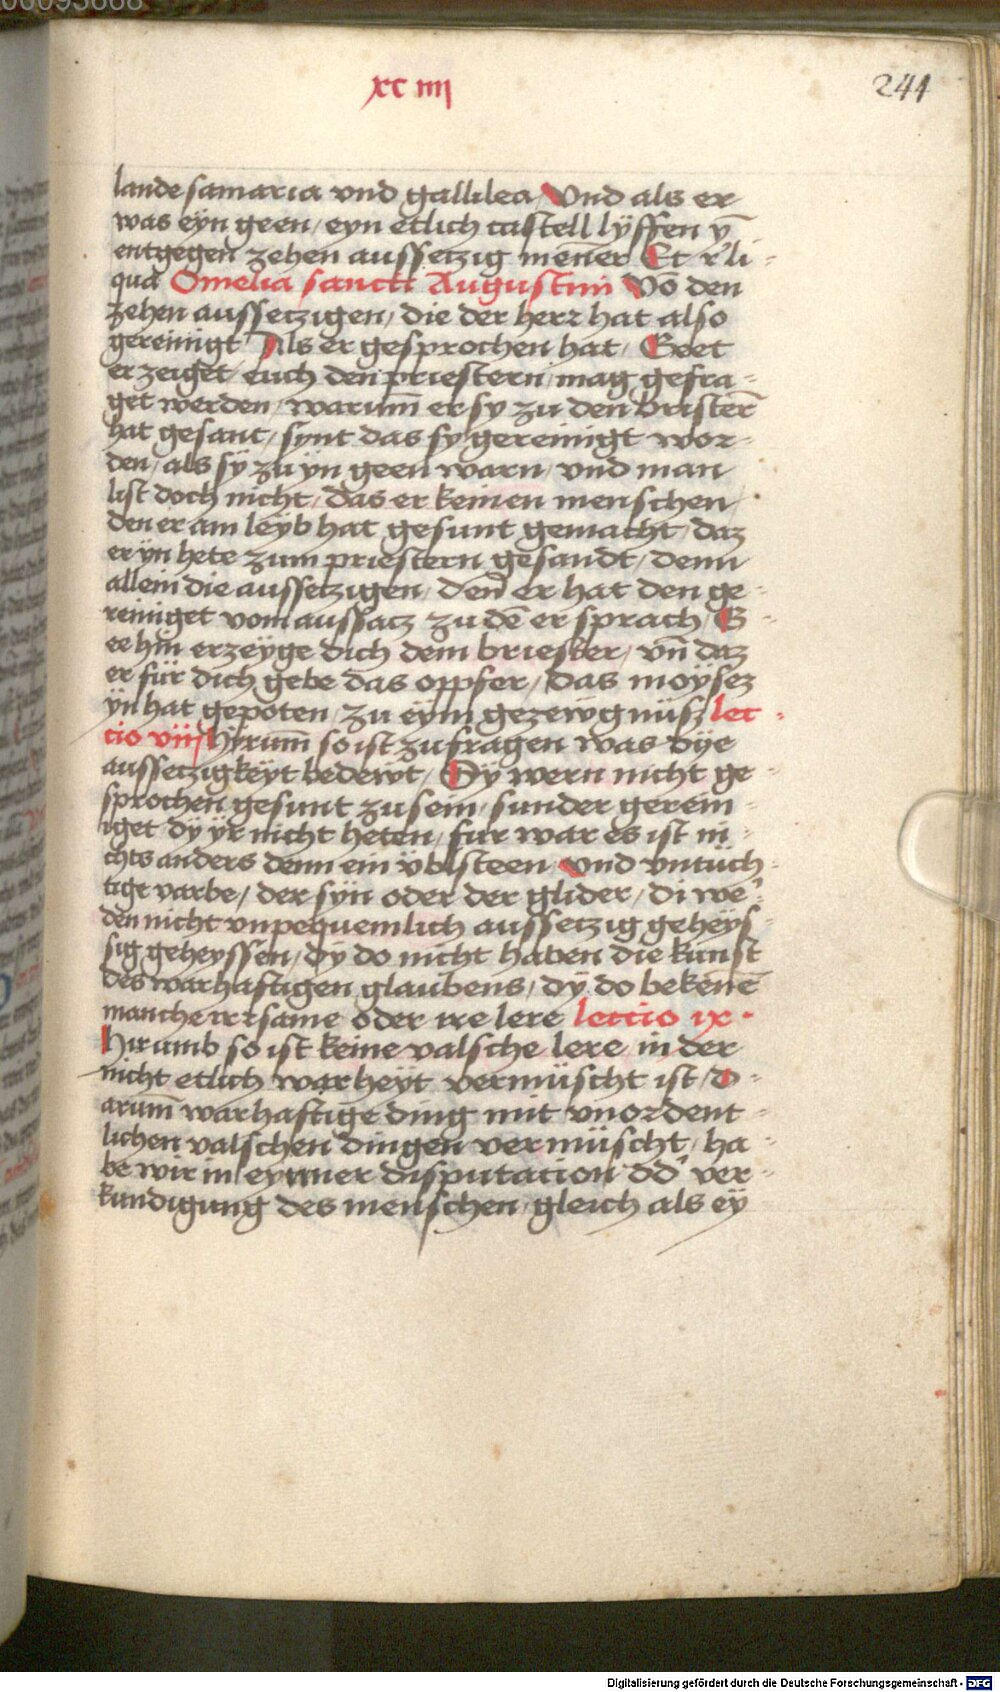 xc iiij
241
lande samaria vnd gallilea / Vnd als er
was eyn geen / eyn etlich castell lyffen ÿ̄
entgegen zehen aussetzig men̄er Et r̕li-
qua Omelia sancti Augustini Vō den
zehen aussetzigen / die der herr hat also
gereinigt Als er gesprochen hat / Geet
erzeiget euch den priestern / mag gefra-
get werden / warum̄ er sy zu den bristern̄
hat gesant / synt das sy gereinigt wor-
den / als sÿ zu yn geen warn / vnd man
list doch nicht / das er keinen menschen /
den er am leÿb hat gesunt gemacht / daz
er ÿn hete zum priestern gesandt / denn
allein die aussetzigen / den̄ er hat den ge-
reiniget vom aussatz zu dē er sprach / G-
ee hin erzeÿge dich dem briester / vn̄ daz
er für dich gebe das oppfer / das moÿsez
ÿn hat gepoten / zu eÿm gezewgnüsz lec-
tio viij Hirum̄ so ist zu fragen was dÿe
aussetzigkeÿt bedewt / Dÿ wern nicht ge-
sprochen gesunt zu sein / sunder gerein-
iget dÿ ÿr nicht heten / fur war es ist ni-
chts anders denn ein ÿbelsteen Vnd vntüch-
tige varbe / der sÿn oder der glider / di we̕-
den nicht vnpequemlich aussetzig geheÿs-
sig geheyssen / dÿ do nicht haben die kunst
des warhaftigen glaubens / dÿ do bekenē
manche irrsame oder ire lere lectio ix
Hirumb so ist keine valsche lere in der
nicht etlich warheÿt vermüscht ist / D-
arum̄ warhaftige ding mit vnordent-
lichen valschen dingen vermüscht / ha-
be wir in eynner disputacion od̕ ver-
kundigung des menschen / gleich als eÿ
Digitalisierung gefördert durch die Deutsche Forschungsgemeinschaft - DFG